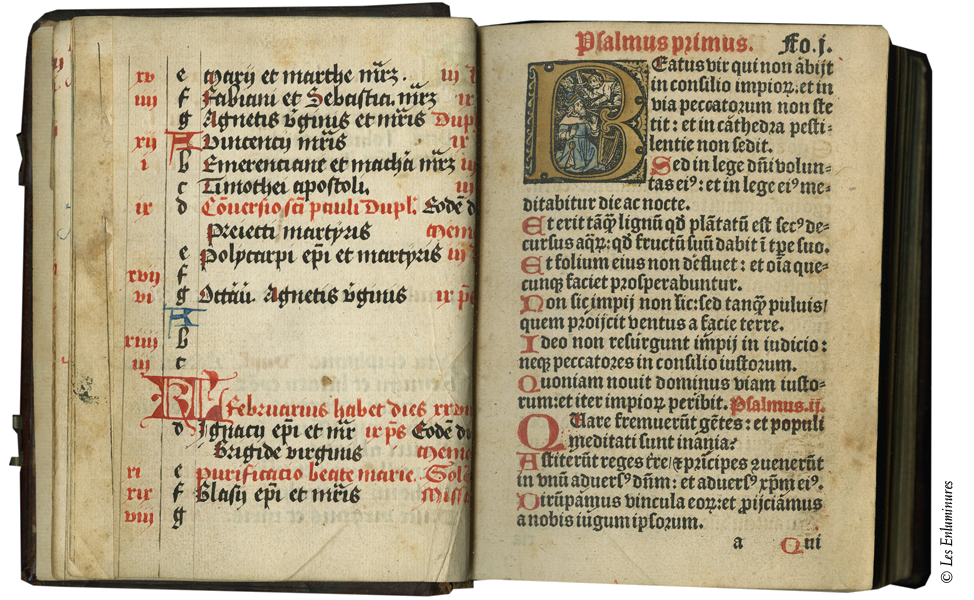 xv e Marii et marthe mr̃z. iij
iiij f Fabiani et Sebastia. mr̃z ix
g Agnetis v̄ginis et mr̃is Dupl
xij A Vincencij mr̃is ix
i b Emerenciane et macha mr̃z
c Timothei apostoli. iij
ix d Cōversio scī pauli Dupl. Eodē d
Preiecti martyris Mem
e Polycarpi ep̄i et martyris iij
xvij f
vi g Octāū. Agnetis v̄ginis ix p̄s
A
xiiij b
iij c
KL Februarius habet dies xxvii
d Ignacij ep̄i et mr̄ ix p̄s Eodē d
Brigide virginis Mem
xi e Purificatio beate marie. Sole
xix f Blasij ep̄i et mr̃is Missa
viij g
Psalmus primus. Fo.j.
Beatus vir qui non abijt
in consilio impioꝝ. et in
via peccatorum non ste
tit: et in cathedra pesti-
lentie non sedit.
Sed in lege dn̄i volun-
tas eiꝰ: et in lege eiꝰ me-
ditabitur die ac nocte.
Et erit tāq̄ lignū qd̄ plātatū est secꝰ de-
cursus aq̄ꝝ: qd̄ fructū suū dabit ī tp̄e suo.
Et folium eius non defluet: et oīa que-
cunqꝫ faciet prosperabuntur.
Non sic impij non sic: sed tanq̄ puluis/
quem proijcit ventus a facie terre.
Ideo non resurgunt impij in iudicio:
neqꝫ peccatores in consilio iustorum.
Quoniam nouit dominus viam iusto-
rum: et iter impioꝝ peribit. Psalmus.ij.
Quare fremuerūt gētes: et populi
meditati sunt inania?
Astiterūt reges tr̄e/ et prīcipes ꝯuenerūt
in vnū aduersꝰ dn̄m: et aduersꝰ xp̄m eiꝰ.
Dirūpamus vincula eoꝝ: et proijciamus
a nobis iugum ipsorum.
a Qui
© Les Enluminures